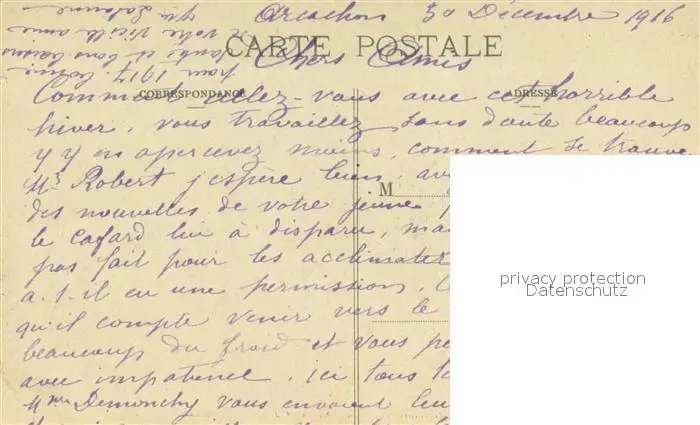 Arcachon 30 Décembre 1916
CARTE POSTALE
Chers Amis
CORRESPONDANCE
ADRESSE
Comment allez-vous avec cet horrible
hiver, vous travaillez sans doute beaucoup
moins, comment se trouve
Mr Robert j'espère bien, av
M
des nouvelles de votre jeune
le cafard lui à disparu, ma
pas fait pour les acclimater
a-t-il eu une permission,
qu'il compte venir vers le
beaucoup du froid et vous
avec impatience, ici tous
Mme Demonchy vous envoient
pour 1917. bonne
santé et bons baisers
votre vieille amie
privacy protection
Datenschutz